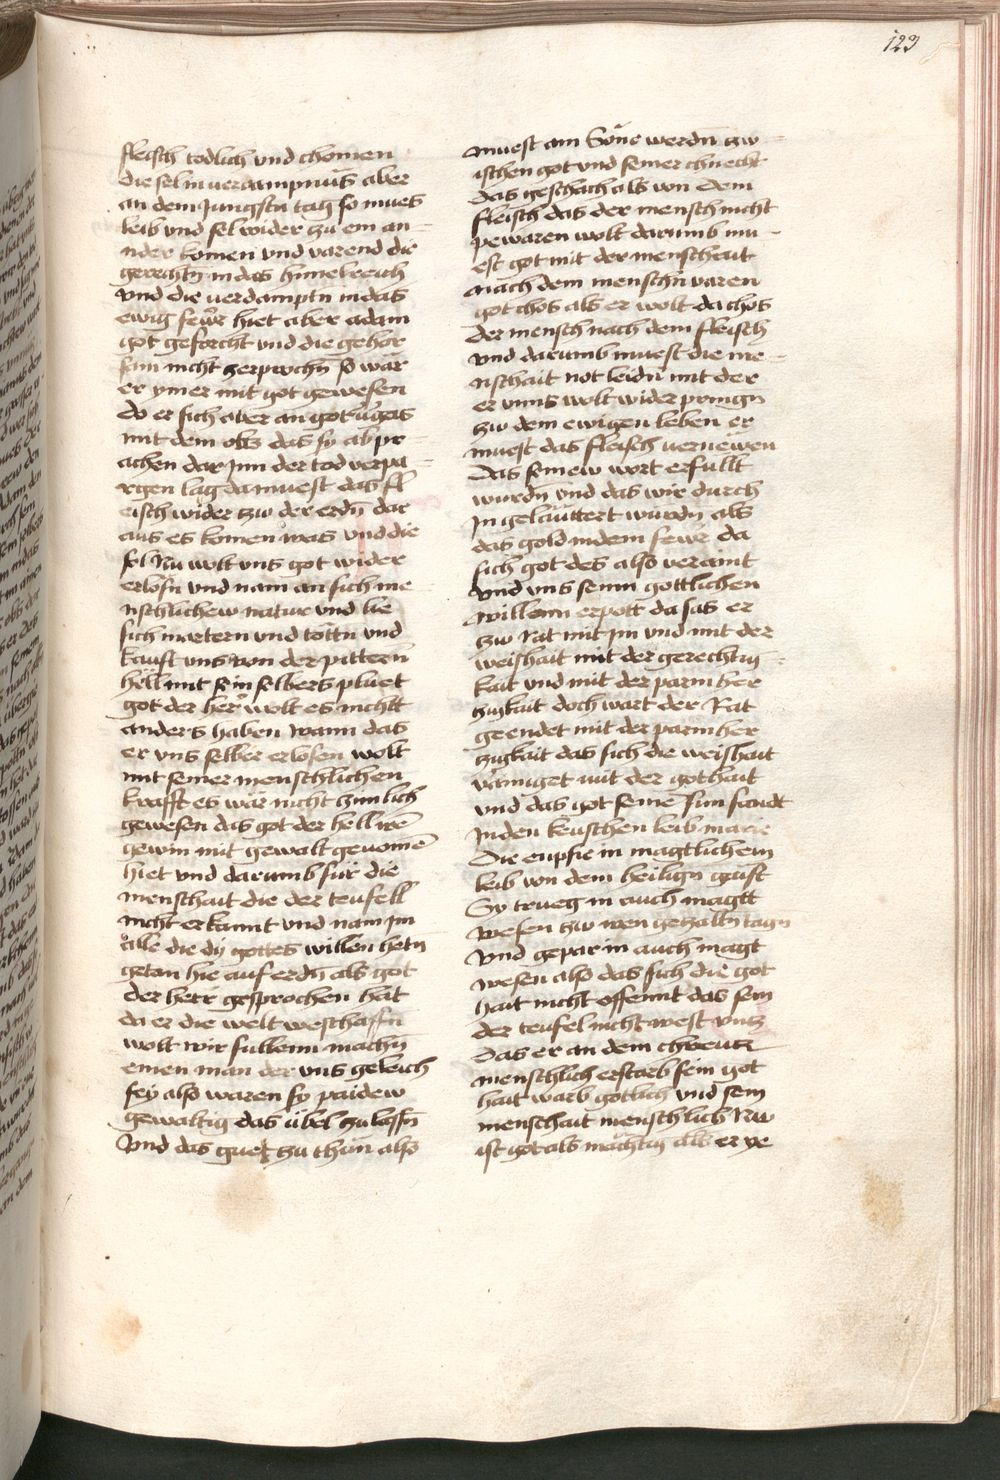 123
fleisch todlich vnd chomen
die sel in verdampnüs aber
an dem Jungstn tag so mues
leib vnd sel wider zu ein an
nder komen vnd varend die
gerechtn in das himelreich
vnd die verdamptn in das
ewig fewr hiet aber adam
got geforcht vnd die gehor
sam nicht zerprochn so wär
er ymer mit got gewesen
do er sich aber an got
mit dem obs das sy ab pr
achen dar jnn der tod verpa
rgen lag da muest das fl
eisch wider zw der erdn dar
aus es komen was vnd die
sel Nu wolt vns got wider
erlosn vnd nam an sich me
nschlichew natur vnd lie
sich martern vnd tottn vnd
kauft vns von der pittern
hell mit sein selbers pluet
got der her wolt es nicht
anders haben wann das
er vns selber erlosen wolt
mit seiner menschlichen
krafft es wär nicht zimlich
gewesen das got der hell iren
gewin mit gewalt genomen
hiet vnd darumb für die
menschait die der teufell
nicht erkannt vnd nam jm
alle die dy gottes willen hetn
getan hie auf erdn als got
der herr gesprochen hat
da er die welt weschaffn
wolt wir sullenn machn
einen man der vns geleich
sey also waren sy paidew
gewaltig das übel zu lassn
Vnd das guet zu thun also
muest ain Sune werdn zw
ischen got vnd seiner chnecht
das geschach als von dem
fleisch das der mensch nicht
pewaren wolt darumb mu
est got mit der menschait
nach dem menschn varen
got chos als er wolt da chos
der mensch nach dem fleisch
vnd darumb muest die me
nschait not leidn mit der
er vnns wolt wider pringn
zw dem ewigen leben er
muest das fleisch vernewen
Das seinew wort erfullt
wurdn vnd das wir durch
jn geläuttert wurdn als
das gold in dem fewr da
sich got des also veraint
vnd vns seinn gottlichen
willenn erpott da sas er
zw Rat mit jm vnd mit der
weishait mit der gerechtig
kait vnd mit der parmher
zigkait doch wart der Rat
geendet mit der parmher
zigkait das sich die weishait
vainiget mit der gothait
vnd das got seinen sun sandt
jn den keuschen leib marie
Die enpfie in magtlichem
leib von dem heilign geist
Sy trueg in auch magtt
wesen zw iren gezalln tagn
Vnd gepar in auch magt
wesen also das sich die got
hait nicht offennt das sein
der teufel nicht west vntz
Das er an dem chreutz
menschlich erstarb sein got
hait warb gotlich vnd sein
menschait menschlich Nu
ist got als mächtig als er ye